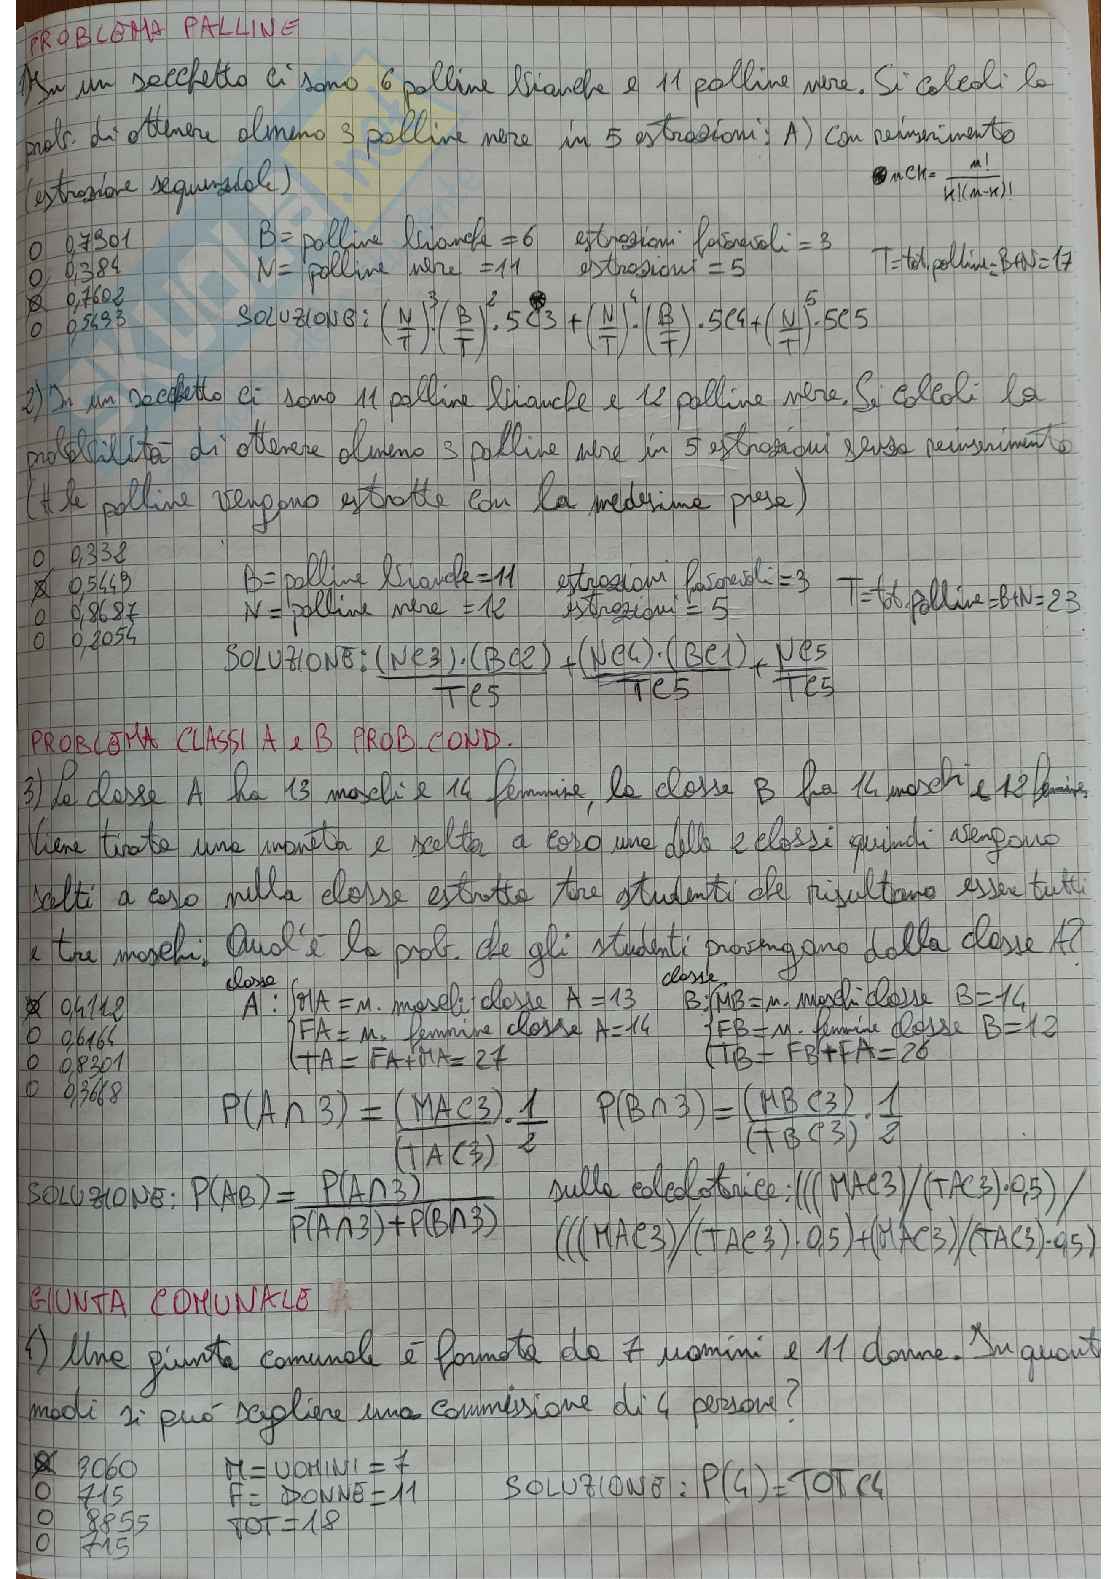 PROBLEMA PALLINE
1) In un sacchetto ci sono 6 palline bianche e 11 palline nere. Si calcoli la
prob. di ottenere almeno 3 palline nere in 5 estrazioni: A) con reinserimento
(estrazione sequenziale)
nCk = n! / k!(n-k)!
O 0,7301
O 0,384
0,7602
O 0,5493
B = palline bianche = 6 estrazioni favorevoli = 3
N = palline nere = 11 estrazioni = 5
T = tot. palline = B+N = 17
SOLUZIONE: (N/T)³·(B/T)²·5C3 + (N/T)⁴·(B/T)·5C4 + (N/T)⁵·5C5
2) In un sacchetto ci sono 11 palline bianche e 12 palline nere. Si calcoli la
probabilità di ottenere almeno 3 palline nere in 5 estrazioni senza reinserimento
(le palline vengono estratte con la medesima presa)
O 0,332
0,5449
O 0,8687
O 0,2054
B = palline bianche = 11 estrazioni favorevoli = 3
N = palline nere = 12 estrazioni = 5
T = tot. palline = B+N = 23
SOLUZIONE: (NC3)·(BC2) / TC5 + (NC4)·(BC1) / TC5 + NC5 / TC5
PROBLEMA CLASSI A e B PROB. COND.
3) La classe A ha 13 maschi e 14 femmine, la classe B ha 14 maschi e 12 femmine.
Viene tirata una moneta e scelta a caso una delle 2 classi quindi vengono
scelti a caso nella classe estratta tre studenti che risultano essere tutti
e tre maschi. Qual'è la prob. che gli studenti provengano dalla classe A?
0,4112
O 0,6164
O 0,8301
O 0,3668
classe A: MA = n. maschi classe A = 13
FA = n. femmine classe A = 14
TA = FA+MA = 27
classe B: MB = n. maschi classe B = 14
FB = n. femmine classe B = 12
TB = FB+FA = 26
P(A∩3) = (MAC3) / (TAC3) · 1/2 P(B∩3) = (MBC3) / (TBC3) · 1/2
SOLUZIONE: P(AB) = P(A∩3) / P(A∩3)+P(B∩3) sulla calcolatrice: (((MAC3)/(TAC3)·0,5) /
(((MAC3)/(TAC3)·0,5)+(MAC3)/(TAC3)·0,5)
GIUNTA COMUNALE
4) Una giunta comunale è formata da 7 uomini e 11 donne. In quanti
modi si può scegliere una commissione di 4 persone?
3060
O 715
O 8855
O 715
M = UOMINI = 7
F = DONNE = 11
TOT = 18
SOLUZIONE: P(4) = TOTC4